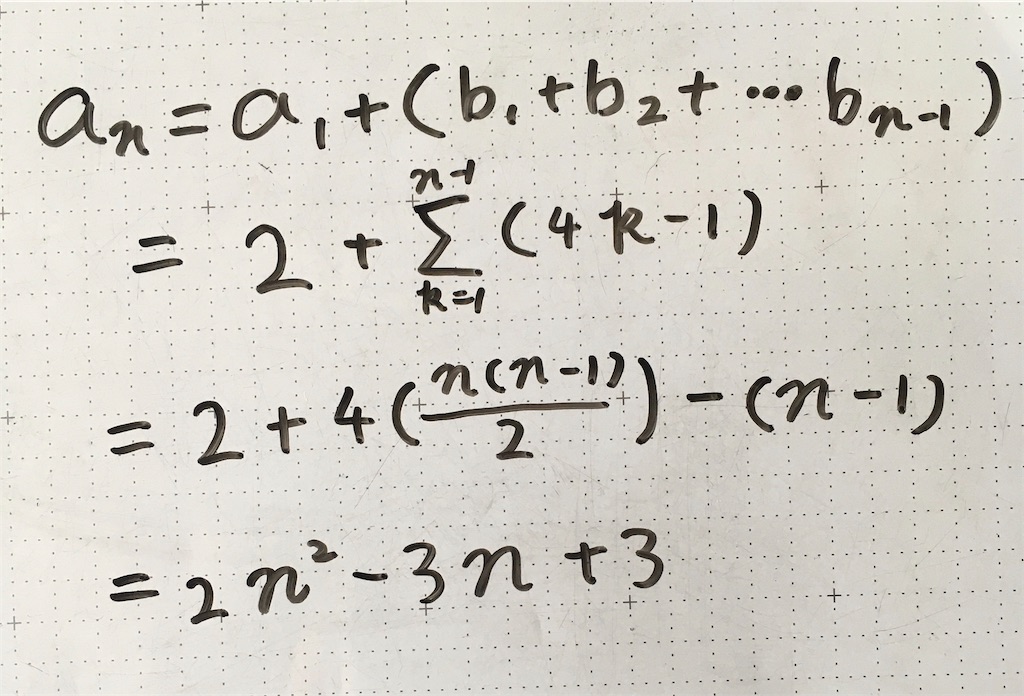 aₙ = a₁ + (b₁ + b₂ + ⋯ bₙ₋₁)
= 2 + ∑_{k=1}^{n-1} (4k - 1)
= 2 + 4(\frac{n(n-1)}{2}) - (n-1)
= 2n² - 3n + 3